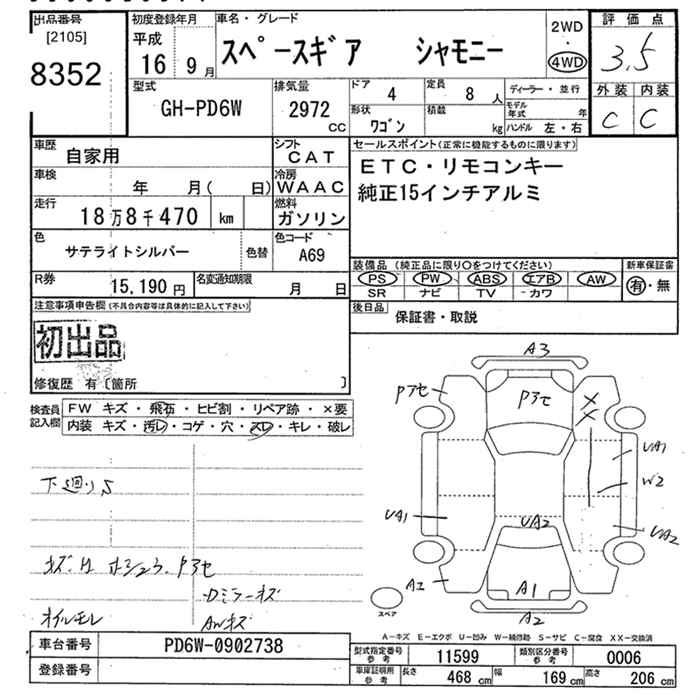 出品番号
[2105]
8352
初度登録年月
平成
16 9月
車名・グレード
スペースギア シャモニー
2WD
・
4WD
評価点
3.5
外装 内装
C C
型式
GH-PD6W
排気量
2972
CC
ドア
4
定員
8 人
ディーラー・並行
形状
ワゴン
積載
kg
モデル年式
年
ハンドル 左・右
車歴
自家用
シフト
CAT
車検
年 月( 日)
冷房
WAAC
走行
18万8千470 km
燃料
ガソリン
色
サテライトシルバー
色替
色コード
A69
R券
15,190 円
名変通知期限
月 日
セールスポイント(正常に機能するものに限ります)
ETC・リモコンキー
純正15インチアルミ
装備品 (純正品に限り〇をつけてください)
PS PW ABS エアB AW
SR ナビ TV カワ
新車保証書
有・無
後日品
保証書・取説
注意事項申告欄(不具合内容等は具体的に記入して下さい)
初出品
修復歴 有〔箇所 〕
検査員
記入欄
FW キズ・飛石・ヒビ割・リペア跡・×要
内装 キズ・汚レ・コゲ・穴・スレ・キレ・破レ
下廻りS
Pアセ
オイルモレ
Dミラーキズ
AWキズ
A3
Pアセ
Pアセ
UA1
W2
UA1
UA2
UA2
A1
A2
スペア
A-キズ E-エクボ U-凹み W-補修跡 S-サビ C-腐食 XX-交換済
車台番号
PD6W-0902738
登録番号
型式指定番号
参考
11599
類別区分番号
参考
0006
車庫証明用
参考
長さ
468 cm
幅
169 cm
高さ
206 cm